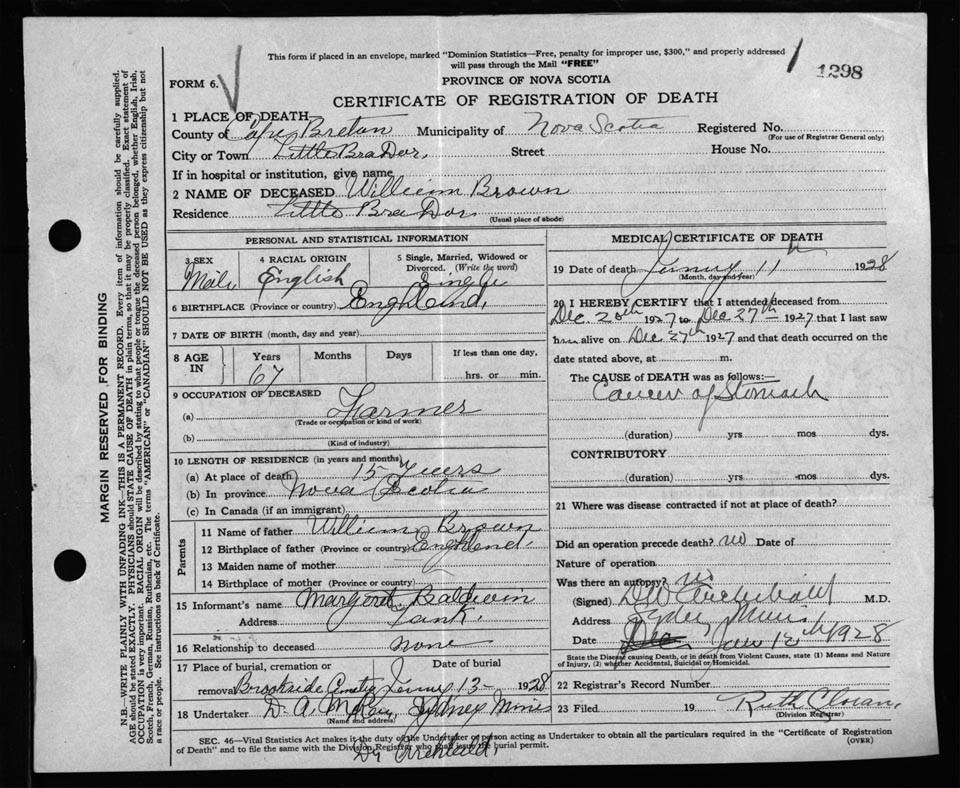 This form if placed in an envelope, marked "Dominion Statistics—Free, penalty for improper use, $300," and properly addressed
will pass through the Mail "FREE"
1298
FORM 6.
PROVINCE OF NOVA SCOTIA
CERTIFICATE OF REGISTRATION OF DEATH
1 PLACE OF DEATH
County of Cape Breton Municipality of Nova Scotia Registered No.
(For use of Registrar General only)
City or Town Little Bra Dor, Street House No.
If in hospital or institution, give name
2 NAME OF DECEASED William Brown
Residence Little Bra Dor
(Usual place of abode)
PERSONAL AND STATISTICAL INFORMATION
3 SEX 4 RACIAL ORIGIN 5 Single, Married, Widowed or
Divorced. (Write the word)
Male English Single
6 BIRTHPLACE (Province or country) England.
7 DATE OF BIRTH (month, day and year)
8 AGE IN Years Months Days If less than one day,
67 hrs. or min.
9 OCCUPATION OF DECEASED
(a) Farmer
(Trade or occupation or kind of work)
(b)
(Kind of industry)
10 LENGTH OF RESIDENCE (in years and months)
(a) At place of death 15 Years
(b) In province Nova Scotia
(c) In Canada (if an immigrant)
Parents
11 Name of father William Brown
12 Birthplace of father (Province or country) England.
13 Maiden name of mother
14 Birthplace of mother (Province or country)
15 Informant's name Margaret Baldwin
Address
16 Relationship to deceased none
17 Place of burial, cremation or Date of burial
removal Brookside Cemetery 13 1928
18 Undertaker D. A. Sydney Mines
(Name and address)
MEDICAL CERTIFICATE OF DEATH
19 Date of death 11th 1928
(Month, day and year)
20 I HEREBY CERTIFY that I attended deceased from
Dec. 20th 1927 to Dec 27th 1927 that I last saw
him alive on Dec 27th 1927 and that death occurred on the
date stated above, at m.
The CAUSE of DEATH was as follows:—
Cancer of Stomach
(duration) yrs mos dys.
CONTRIBUTORY
(duration) yrs mos dys.
21 Where was disease contracted if not at place of death?
Did an operation precede death? no Date of
Nature of operation
Was there an autopsy? no
(Signed) Archibald M.D.
Address Sydney Mines
Date Jan 12th 1928
State the Disease causing Death, or in death from Violent Causes, state (1) Means and Nature
of Injury, (2) whether Accidental, Suicidal or Homicidal.
22 Registrar's Record Number
23 Filed 19 Ruth
(Division Registrar)
SEC. 46—Vital Statistics Act makes it the duty of the Undertaker or person acting as Undertaker to obtain all the particulars required in the "Certificate of Registration
of Death" and to file the same with the Division Registrar who shall issue the burial permit. (OVER)
Dr Archibald.
MARGIN RESERVED FOR BINDING
N.B.—WRITE PLAINLY WITH UNFADING INK—THIS IS A PERMANENT RECORD. Every item of information should be carefully supplied.
AGE should be stated EXACTLY. PHYSICIANS should STATE CAUSE OF DEATH in plain terms, so that it may be properly classified. Exact statement of
OCCUPATION is very important. RACIAL ORIGIN will be described by stating to what people or tongue the deceased person belonged, whether English, Irish,
Scotch, French, German, Russian, Ruthenian, etc. The terms "AMERICAN" or "CANADIAN" SHOULD NOT BE USED as they express citizenship but not
a race or people. See instructions on back of Certificate.